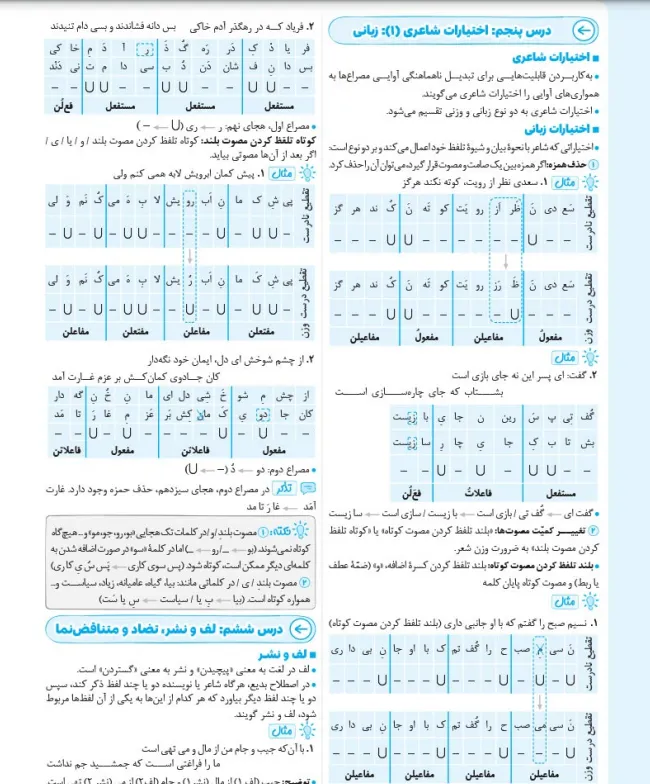 درس پنجم: اختیارات شاعری (۱): زبانی
اختیارات شاعری
• به‌کاربردن قابلیت‌هایی برای تبدیل ناهماهنگی آوایی مصراع‌ها به
همواری‌های آوایی را اختیارات شاعری می‌گویند.
• اختیارات شاعری به دو نوع زبانی و وزنی تقسیم می‌شود.
اختیارات زبانی
• اختیاراتی که شاعر با نحوۀ بیان و شیوۀ تلفظ خود اعمال می‌کند و بر دو نوع است:
۱ حذف همزه: اگر همزه بین یک صامت و مصوت قرار گیرد، می‌توان آن را حذف کرد.
مثال ۱. سعدی نظر از رویت، کوته نکند هرگز
تقطیع نادرست
سَع دی نَ ظَر اَز رو یَت کو تَه نَ کُ نَد هر گز
– – U – – – – – – U U – – –
تقطیع درست
سَع دی نَ ظَ رَز رو یَت کو تَه نَ کُ نَد هر گز
– – U U – – – – – U U – – –
وزن
مفعولُ مفاعیلن مفعولُ مفاعیلن
مثال
۲. گفت: ای پسر این نه جای بازی است
بشتاب که جای چاره‌سازی است
گُف تِی پِ سَ رین نَ جا یِ با زیست
بِش تا بِ کِ جا یِ چا رِ سا زیست
– – U U – U – U – –
مستفعل فاعلاتُ فع‌لُن
• گفت ای ← گُف تی / بازی است ← با زیست / سازی است ← سا زیست
۲ تغییر کمیّت مصوت‌ها: «بلند تلفظ کردن مصوت کوتاه» یا «کوتاه تلفظ
کردن مصوت بلند» به ضرورت وزن شعر.
بلند تلفظ کردن مصوت کوتاه: بلند تلفظ کردن کسرۀ اضافه، «و» (ضمّۀ عطف
یا ربط) و مصوت کوتاه پایان کلمه
مثال
۱. نسیم صبح را گفتم که با او جانبی داری (بلند تلفظ کردن مصوت کوتاه)
تقطیع نادرست
نَ سی مِ صب ح را گُف تم ک با او جا نِ بی دا ری
U – U – U – – – U – – – U – – –
تقطیع درست
نَ سی مِی صب ح را گُف تم ک با او جا نِ بی دا ری
U – – – U – – – U – – – U – – –
وزن
مفاعیلن مفاعیلن مفاعیلن مفاعیلن
۲. فریاد که در رهگذر آدم خاکی بس دانه فشاندند و بسی دام تنیدند
فَر یا دُ کِ دَر رَه گُ ذَ رِ آ دَ مِ خا کی
بَس دا نِ فِ شان دَن دُ بِ سی دا م تَ نی دَند
– – U U – – U U – – U U – –
مستفعل مستفعل مستفعل فع‌لُن
• مصراع اول، هجای نهم: رِ ← ری (U ← –)
کوتاه تلفظ کردن مصوت بلند: کوتاه تلفظ کردن مصوت بلند / و / یا / ی /
اگر بعد از آن‌ها مصوتی بیاید.
مثال ۱. پیش کمان ابرویش لابه همی کنم ولی
تقطیع نادرست
پی شِ کَ ما نِ اَب رو یش لا بِ هَ می کُ نَم وَ لی
– U U – U – – – – U U – U – U –
تقطیع درست
پی شِ کَ ما نِ اَب رُ یش لا بِ هَ می کُ نَم وَ لی
– U U – U – U – – U U – U – U –
وزن
مفتعلن مفاعلن مفتعلن مفاعلن
۲. از چشم شوخش ای دل، ایمان خود نگه‌دار
کان جادوی کمان‌کش بر عزم غارت آمد
از چش مِ شو خَش ای دل ای ما نِ خُ نِ گَه دار
کان جا دو یِ کَ مان کِش بَر عَز مِ غا رَ تا مَد
– – U – U – – – – U – U – –
مفعول فاعلاتن مفعول فاعلاتن
• مصراع دوم: دو ← دُ (– ← U)
تذکّر در مصراع دوم، هجای سیزدهم، حذف حمزه وجود دارد. غارت
آمَد ← غا رَ تا مد
نکته: ۱ مصوت بلندِ /و/ در کلمات تک‌هجایی «بو، رو، جو، مو» و... هیچ‌گاه
کوتاه نمی‌شوند. (بو ← ـ/رو ← ـ) اما در کلمۀ «سو» در صورت اضافه شدن به
کلمه‌ای دیگر ممکن است، کوتاه شود. (پس سوی کاری ← پَس سُ یِ کاری)
۲ مصوت بلندِ / ی / در کلماتی مانند: بیا، گیاه، عامیانه، زیاد، سیاست و...
همواره کوتاه است. (بیا ← بِ یا / سیاست ← سِ یا سَت)
درس ششم: لف و نشر، تضاد و متناقض‌نما
لف و نشر
• لف در لغت به معنی «پیچیدن» و نشر به معنی «گستردن» است.
• در اصطلاح بدیع، هرگاه شاعر یا نویسنده دو یا چند لفظ ذکر کند، سپس
دو یا چند لفظ دیگر بیاورد که هر کدام از این‌ها به یکی از آن لفظ‌ها مربوط
شود، لف و نشر گویند.
مثال
۱. با آن‌که جیب و جام من از مال و می تهی است
ما را فراغتی است که جمشید جم نداشت